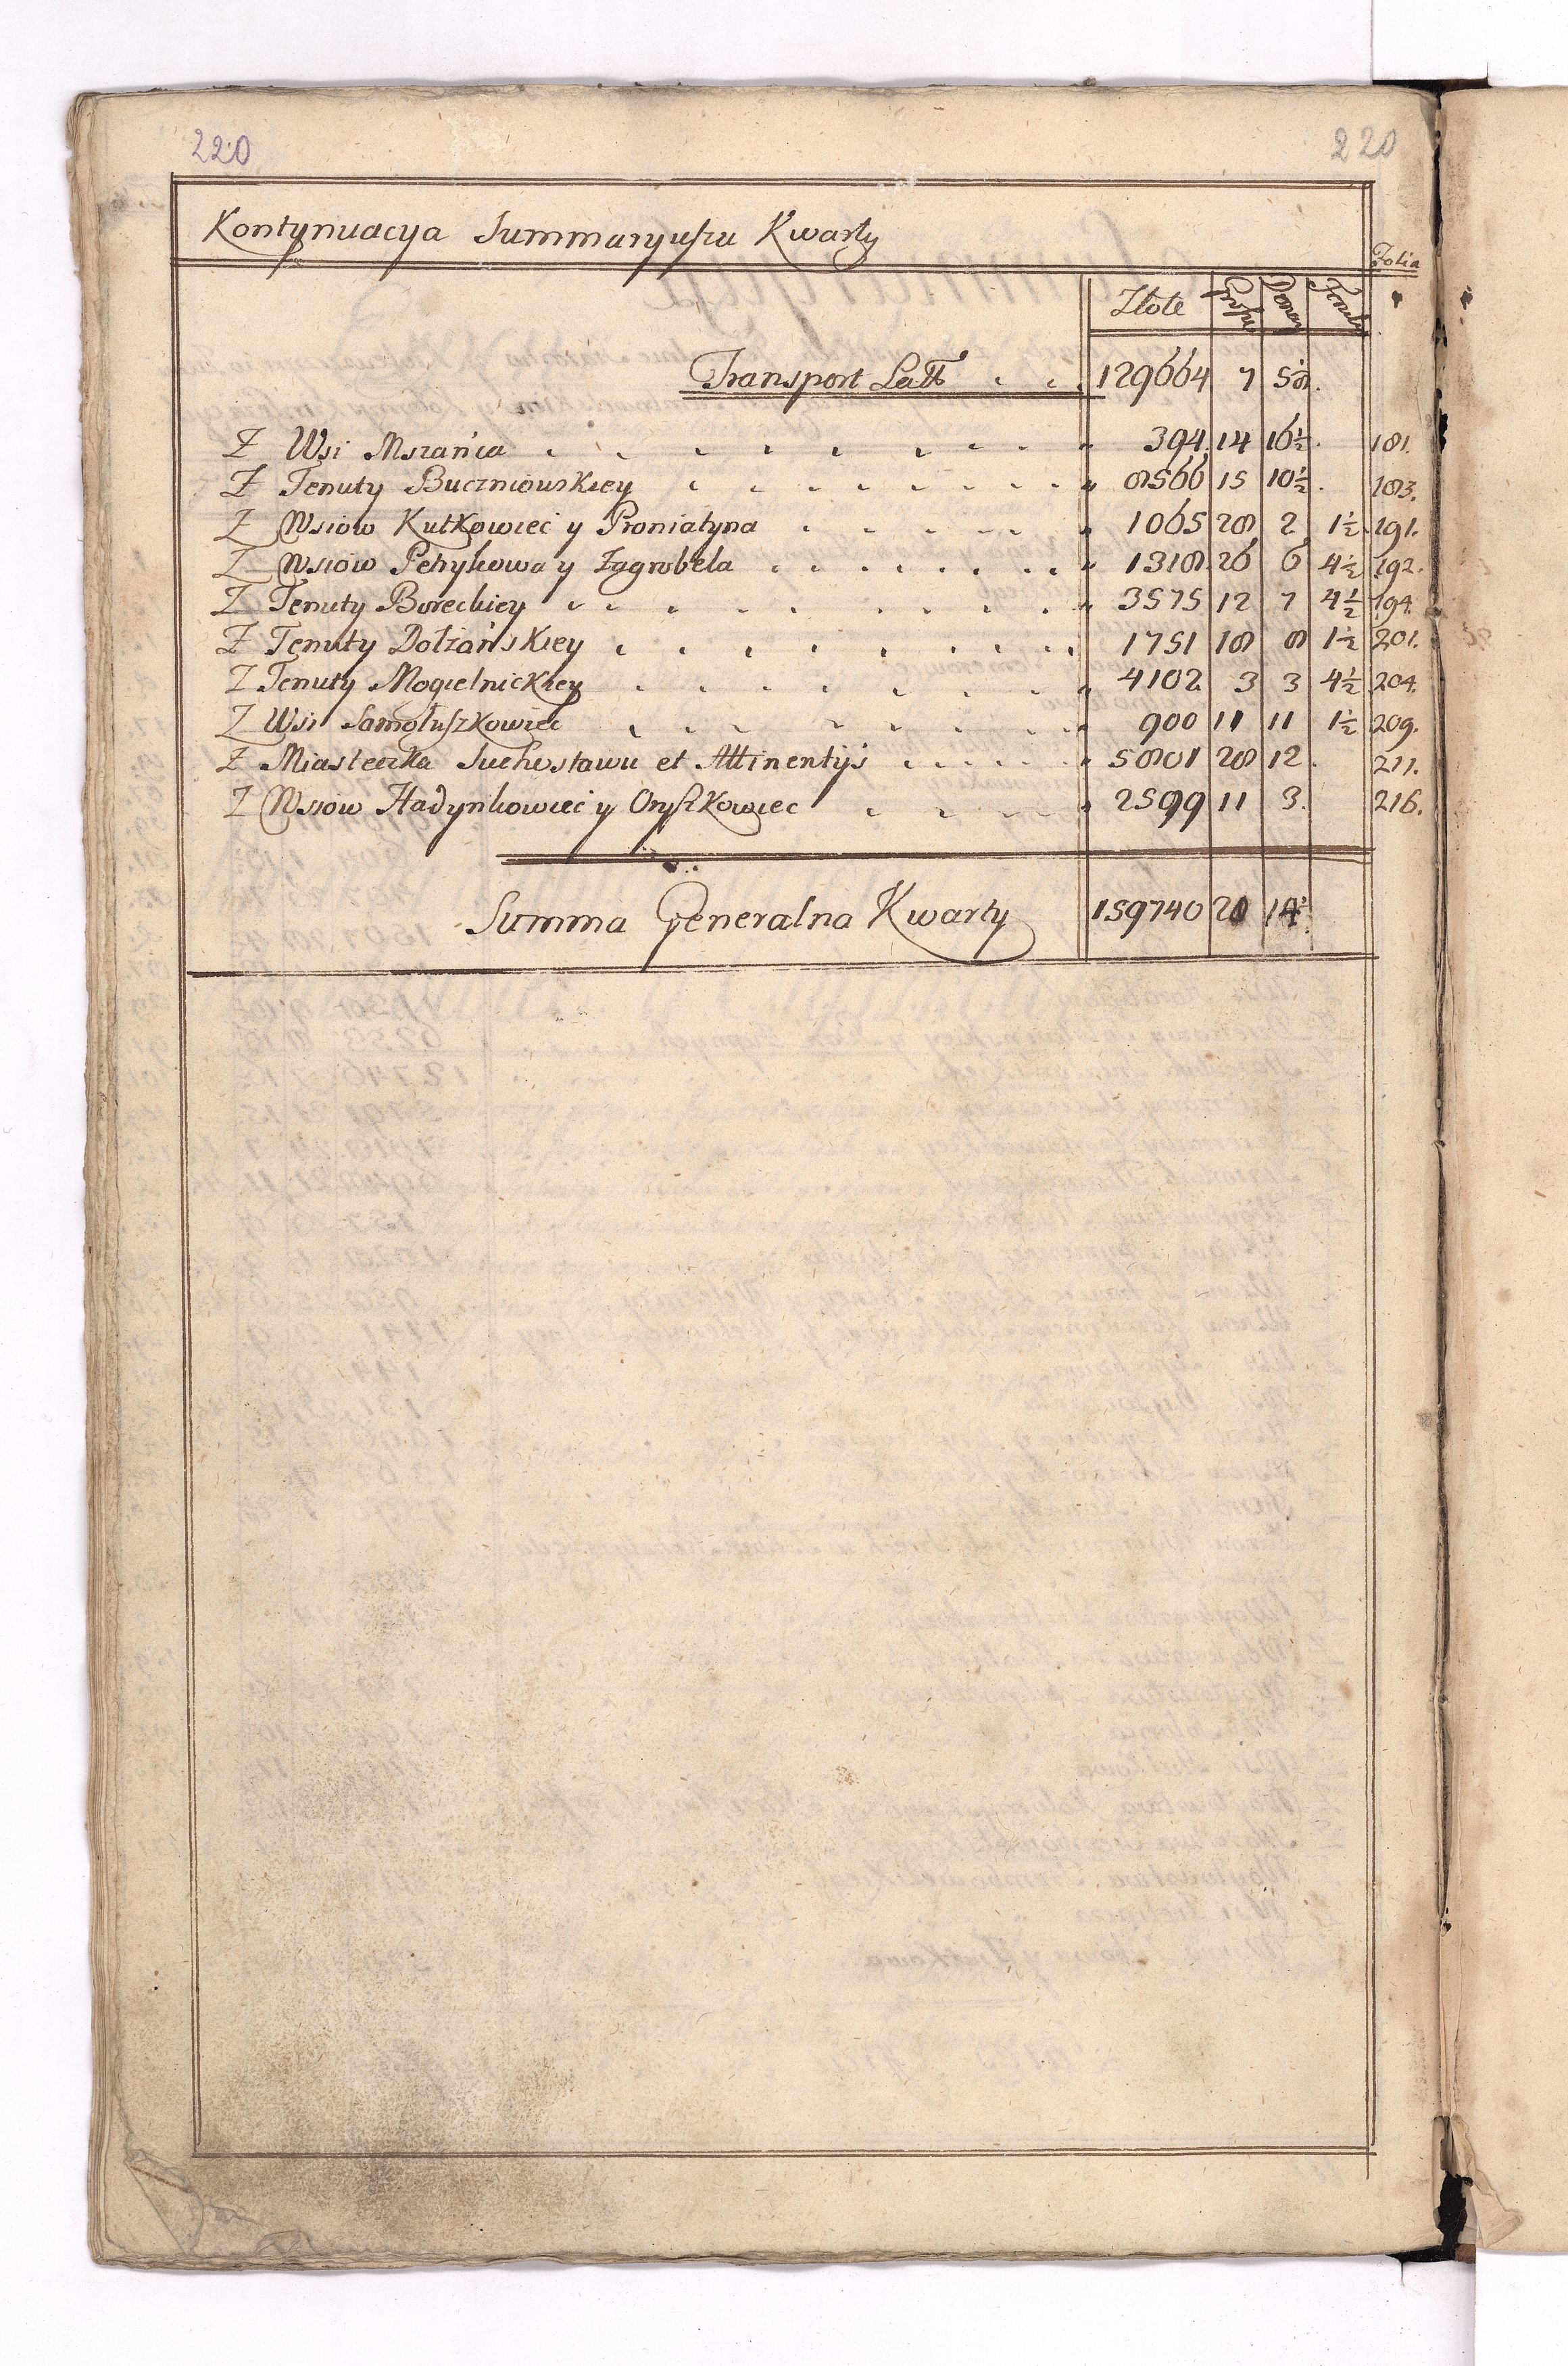 220 220
Kontynuacya Summaryuszu Kwarty
Folia
Złote Grosze Denar
Transport Latt 129664 7 5
Z Wsi Mszańca 394 14 16½ 181.
Z Tenuty Buczniowskiey 8566 15 10½ 183.
Z Wsiow Kutkowiec y Proniatyna 1065 28 2 1½ 191.
Z Wsiow Petrykowa y Zagrobela 1318 26 6 4½ 192.
Z Tenuty Boreckiey 3575 12 7 4½ 194.
Z Tenuty Dołżańskiey 1751 18 8 1½ 201.
Z Tenuty Mogielnickiey 4102 3 3 4½ 204.
Z Wsi Samołuszkowiec 900 11 11 1½ 209.
Z Miasteczka Suchostawu et Attinentys 5801 28 12 211.
Z Wsiow Hadynkowiec y Oryszkowiec 2599 11 3. 216.
Summa Generalna Kwarty 159740 20 14